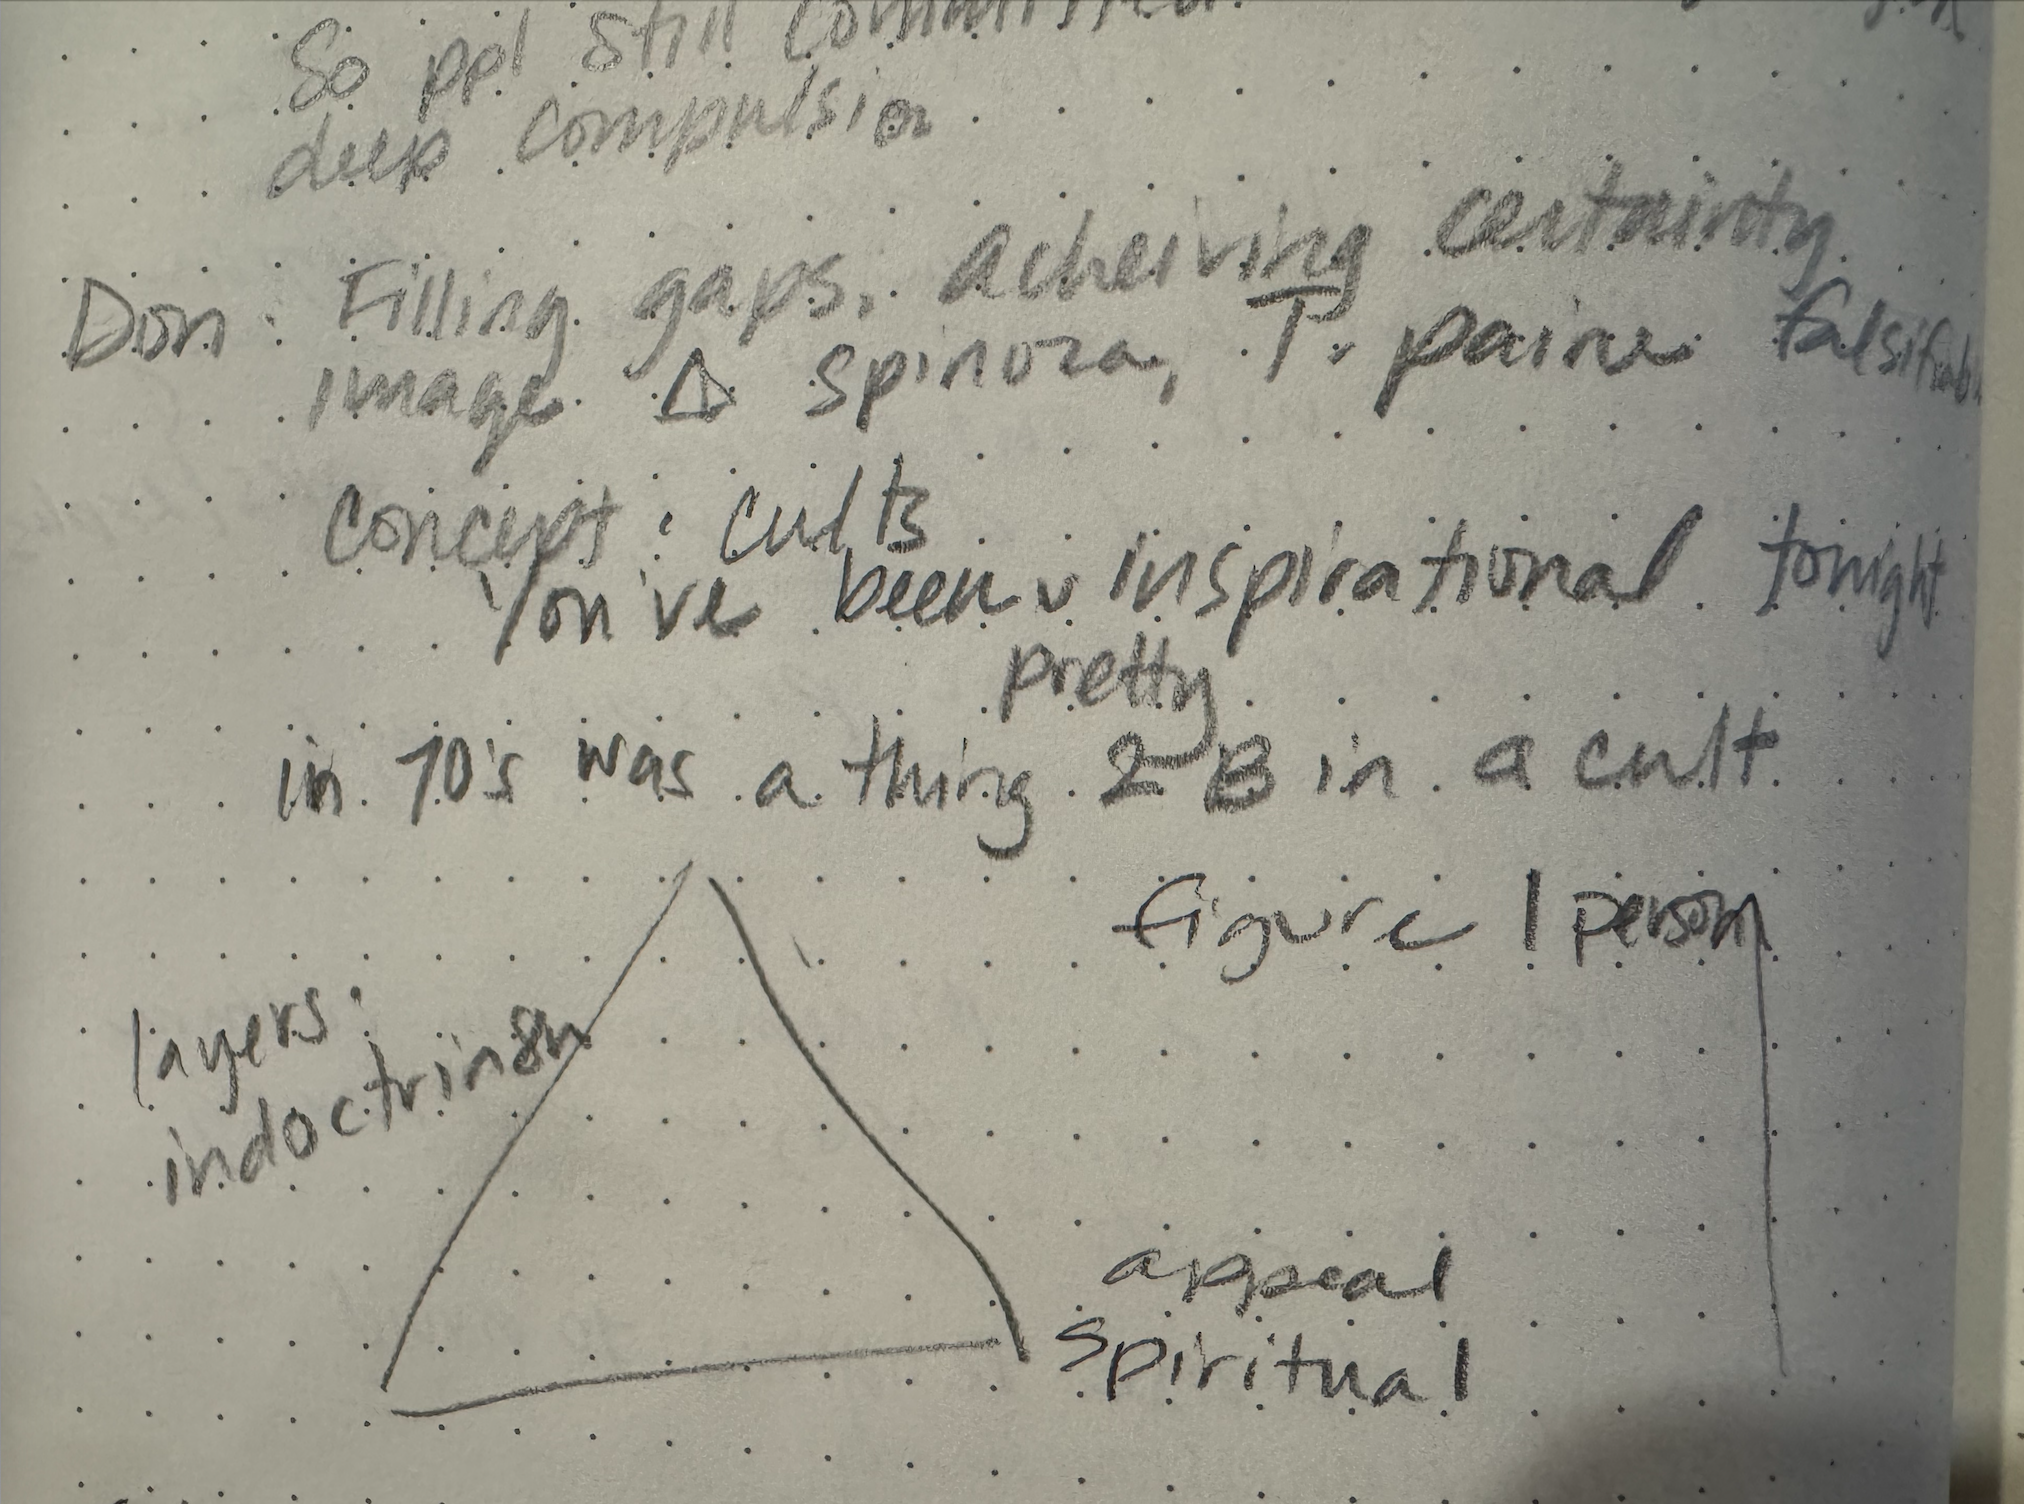 So ppl still
deep compulsion
Don: Filling gaps, acheiving certainty
image Δ spinoza, T. paine falsifiabl
concept: cults
You've been v inspirational tonight
pretty
in 70's was a thing 2 B in a cult
figure 1 person
layers:
indoctrin8n
appeal
spiritual